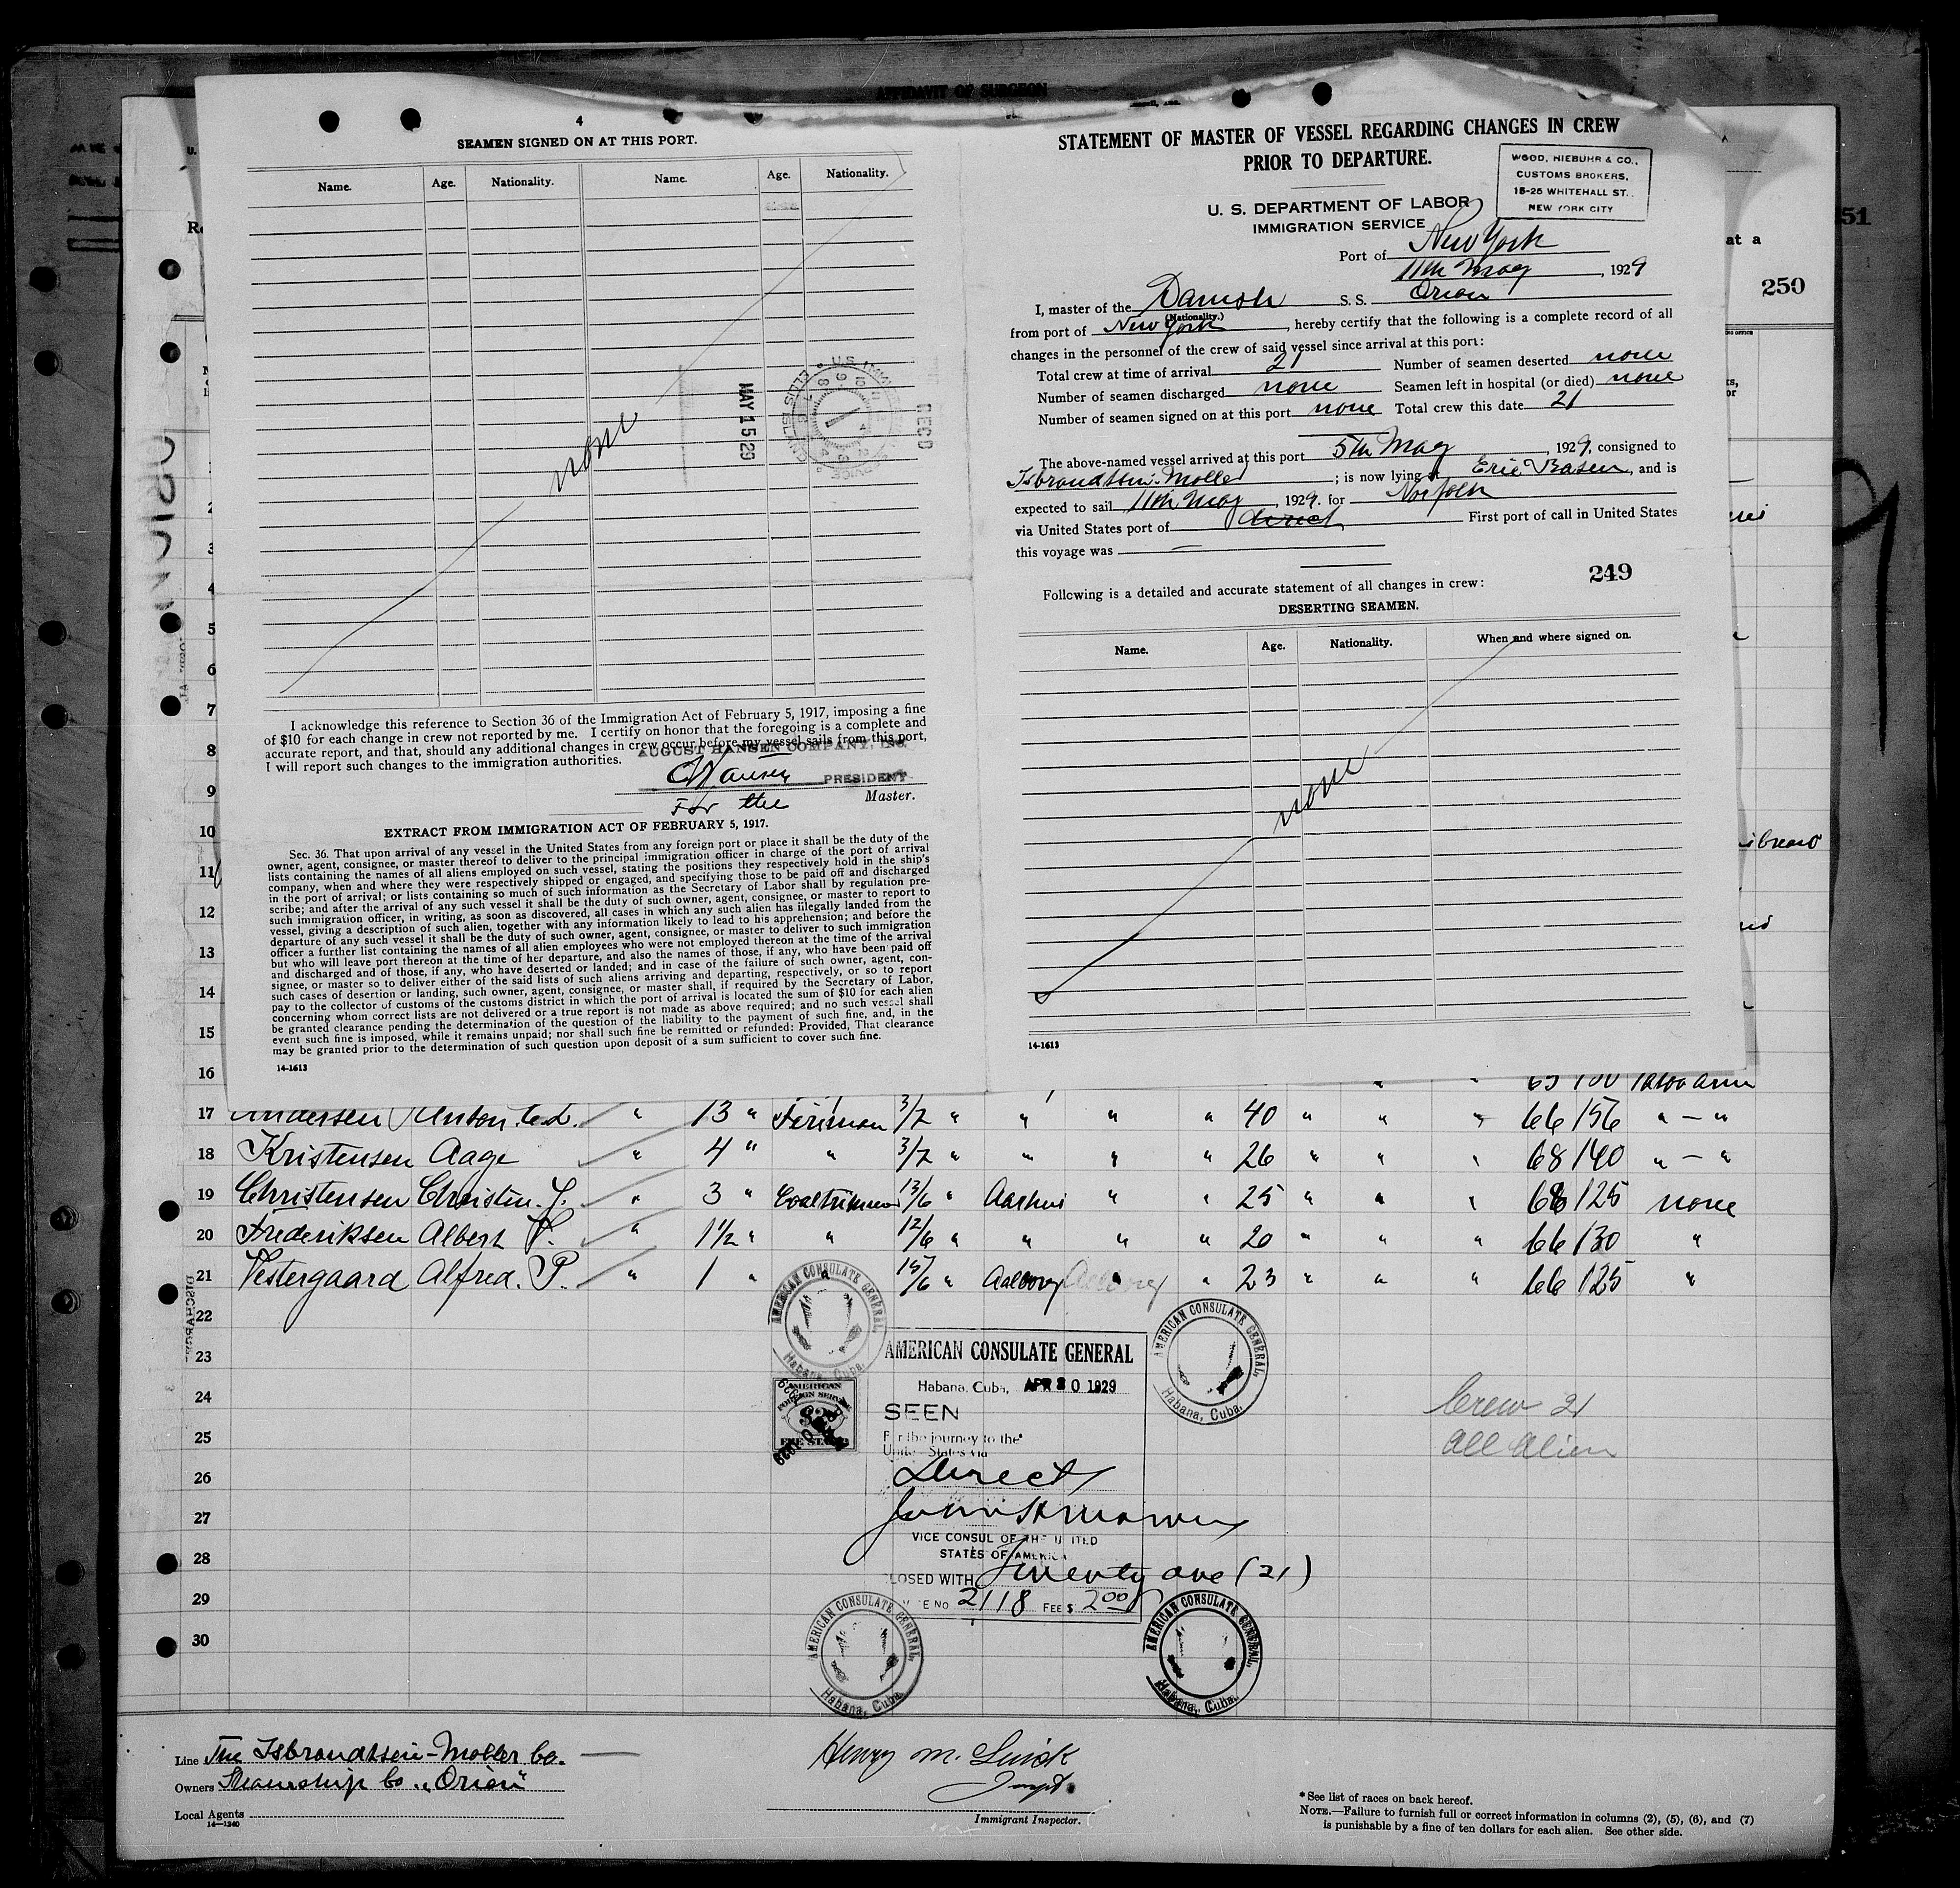 AFFIDAVIT OF SURGEON
4
SEAMEN SIGNED ON AT THIS PORT.
Name. Age. Nationality. Name. Age. Nationality.
none
MAY 15 29
RECD
I acknowledge this reference to Section 36 of the Immigration Act of February 5, 1917, imposing a fine
of $10 for each change in crew not reported by me. I certify on honor that the foregoing is a complete and
accurate report, and that, should any additional changes in crew occur before my vessel sails from this port,
I will report such changes to the immigration authorities.
AUGUST HANSEN COMPANY, INC.
PRESIDENT
For the Master.
EXTRACT FROM IMMIGRATION ACT OF FEBRUARY 5, 1917.
Sec. 36. That upon arrival of any vessel in the United States from any foreign port or place it shall be the duty of the
owner, agent, consignee, or master thereof to deliver to the principal immigration officer in charge of the port of arrival
lists containing the names of all aliens employed on such vessel, stating the positions they respectively hold in the ship's
company, when and where they were respectively shipped or engaged, and specifying those to be paid off and discharged
in the port of arrival; or lists containing so much of such information as the Secretary of Labor shall by regulation pre-
scribe; and after the arrival of any such vessel it shall be the duty of such owner, agent, consignee, or master to report to
such immigration officer, in writing, as soon as discovered, all cases in which any such alien has illegally landed from the
vessel, giving a description of such alien, together with any information likely to lead to his apprehension; and before the
departure of any such vessel it shall be the duty of such owner, agent, consignee, or master to deliver to such immigration
officer a further list containing the names of all alien employees who were not employed thereon at the time of the arrival
but who will leave port thereon at the time of her departure, and also the names of those, if any, who have been paid off
and discharged and of those, if any, who have deserted or landed; and in case of the failure of such owner, agent, con-
signee, or master so to deliver either of the said lists of such aliens arriving and departing, respectively, or so to report
such cases of desertion or landing, such owner, agent, consignee, or master shall, if required by the Secretary of Labor,
pay to the collector of customs of the customs district in which the port of arrival is located the sum of $10 for each alien
concerning whom correct lists are not delivered or a true report is not made as above required; and no such vessel shall
be granted clearance pending the determination of the question of the liability to the payment of such fine, and, in the
event such fine is imposed, while it remains unpaid; nor shall such fine be remitted or refunded: Provided, That clearance
may be granted prior to the determination of such question upon deposit of a sum sufficient to cover such fine.
14-1613
STATEMENT OF MASTER OF VESSEL REGARDING CHANGES IN CREW
PRIOR TO DEPARTURE.
WOOD, NIEBUHR & CO.,
CUSTOMS BROKERS,
15-25 WHITEHALL ST.
NEW YORK CITY
U. S. DEPARTMENT OF LABOR
IMMIGRATION SERVICE
Port of New York
11th May, 1929
I, master of the Danish S. S. Orion
(Nationality.)
from port of New York, hereby certify that the following is a complete record of all
changes in the personnel of the crew of said vessel since arrival at this port:
Total crew at time of arrival 21 Number of seamen deserted none
Number of seamen discharged none Seamen left in hospital (or died) none
Number of seamen signed on at this port none Total crew this date 21
The above-named vessel arrived at this port 5th May, 1929, consigned to
Isbrandtsen-Moller; is now lying at Erie Basin, and is
expected to sail 11th May, 1929. for Norfolk
via United States port of direct First port of call in United States
this voyage was —
249
Following is a detailed and accurate statement of all changes in crew:
DESERTING SEAMEN.
Name. Age. Nationality. When and where signed on.
none
14-1613
51
at a
250
7
8
9
10
11
12
13
14
15
16
17 Andersen Anton. C.L. " 13 " Fireman 3/7 " " " " 40 " " " 66 156 " - "
18 Kristensen Aage " 4 " " 3/7 " " " " 26 " " " 68 140 " - "
19 Christensen Christen. J. " 3 " Coaltrimmer 13/6 " Aarhus " " 25 " " " 68 125 none
20 Frederiksen Albert V. " 1½ " " 12/6 " " " " 20 " " " 66 130 "
21 Vestergaard Alfred. P. " 1 " " 15/6 " Aalborg " " 23 " " " 66 125 "
22
23
24
25
26
27
28
29
30
AMERICAN CONSULATE GENERAL, Habana, Cuba.
AMERICAN CONSULATE GENERAL
Habana, Cuba, APR 30 1929
SEEN
For the journey to the
United States via
Direct
VICE CONSUL OF THE UNITED
STATES OF AMERICA
CLOSED WITH Twenty one (21)
No 2118 FEE $ 2.00
AMERICAN CONSULATE GENERAL, Habana, Cuba.
AMERICAN CONSULATE GENERAL, Habana, Cuba.
AMERICAN CONSULATE GENERAL, Habana, Cuba.
Crew 21
All Alien
Line The Isbrandtsen-Moller Co.
Owners Steamship Co „Orion"
Local Agents
14—1240
Henry M.
Immigrant Inspector.
* See list of races on back hereof.
NOTE.—Failure to furnish full or correct information in columns (2), (5), (6), and (7)
is punishable by a fine of ten dollars for each alien. See other side.